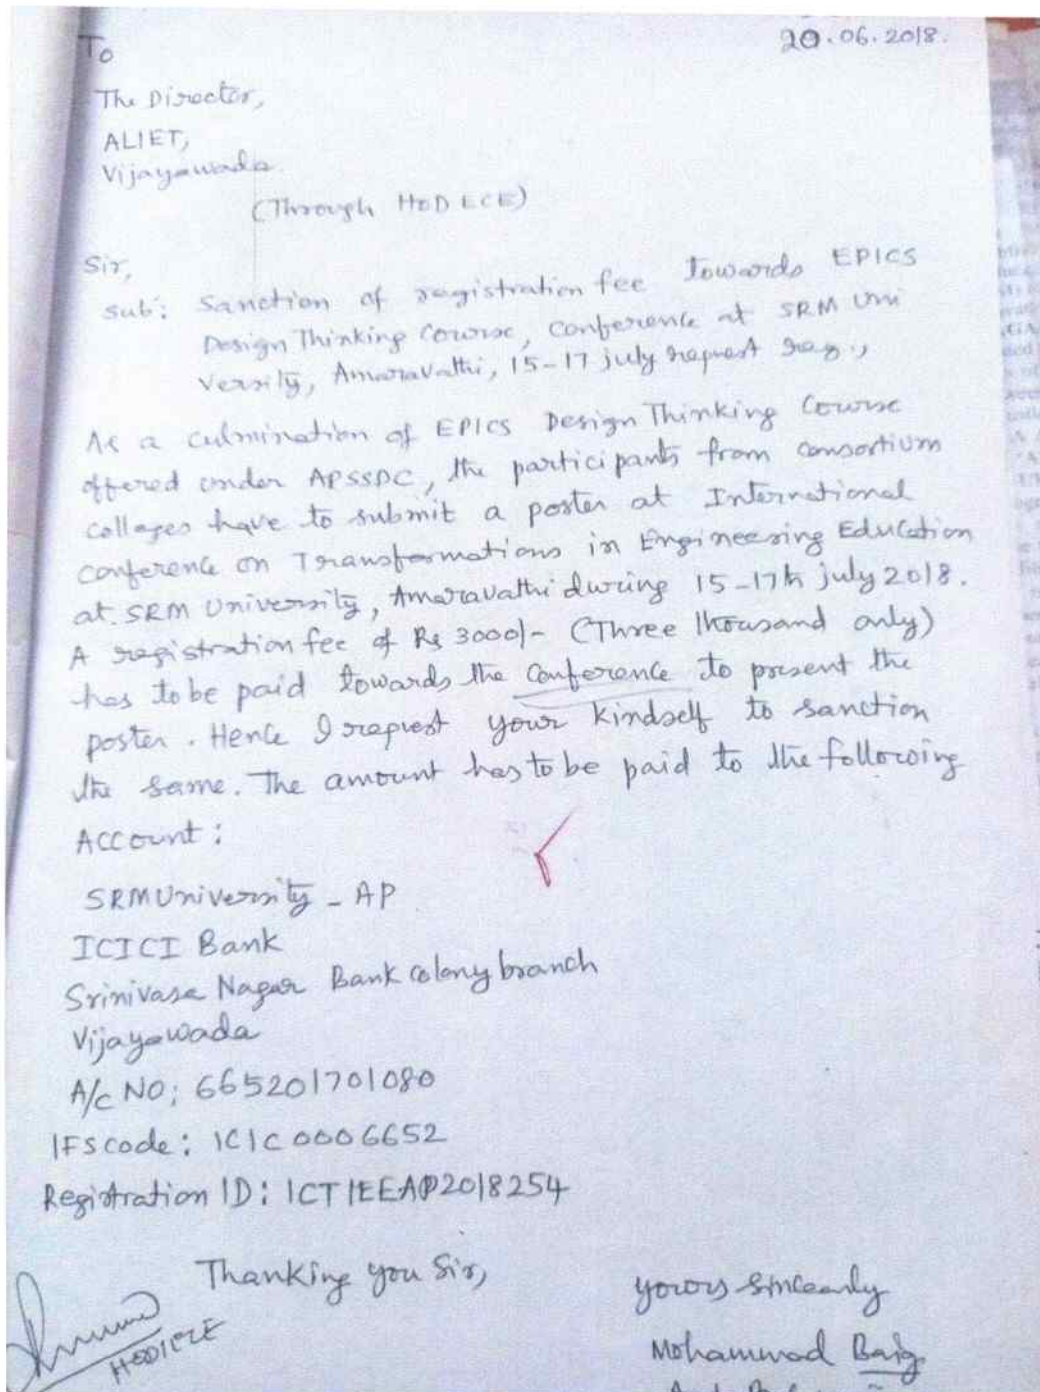 To
20.06.2018.
The Director,
ALIET,
Vijayawada.
(Through HOD ECE)
Sir,
Sub: Sanction of registration fee Towards EPICS
Design Thinking Course, Conference at SRM Uni
versity, Amaravathi, 15-17 july request reg.,
As a culmination of EPICS Design Thinking Course
offered under APSSDC, the participants from consortium
colleges have to submit a poster at International
conference on Transformations in Engineering Education
at SRM University, Amaravathi during 15-17th july 2018.
A registration fee of Rs 3000/- (Three thousand only)
has to be paid towards the Conference to present the
poster. Hence I request your kindself to sanction
the same. The amount has to be paid to the following
Account:
SRM University - AP
ICICI Bank
Srinivasa Nagar Bank colony branch
Vijayawada
A/c NO: 665201701080
IFS code: ICIC0006652
Registration ID: ICTIEEAP2018254
Thanking you Sir,
yours sincerely
HOD/ECE
Mohammad Baig